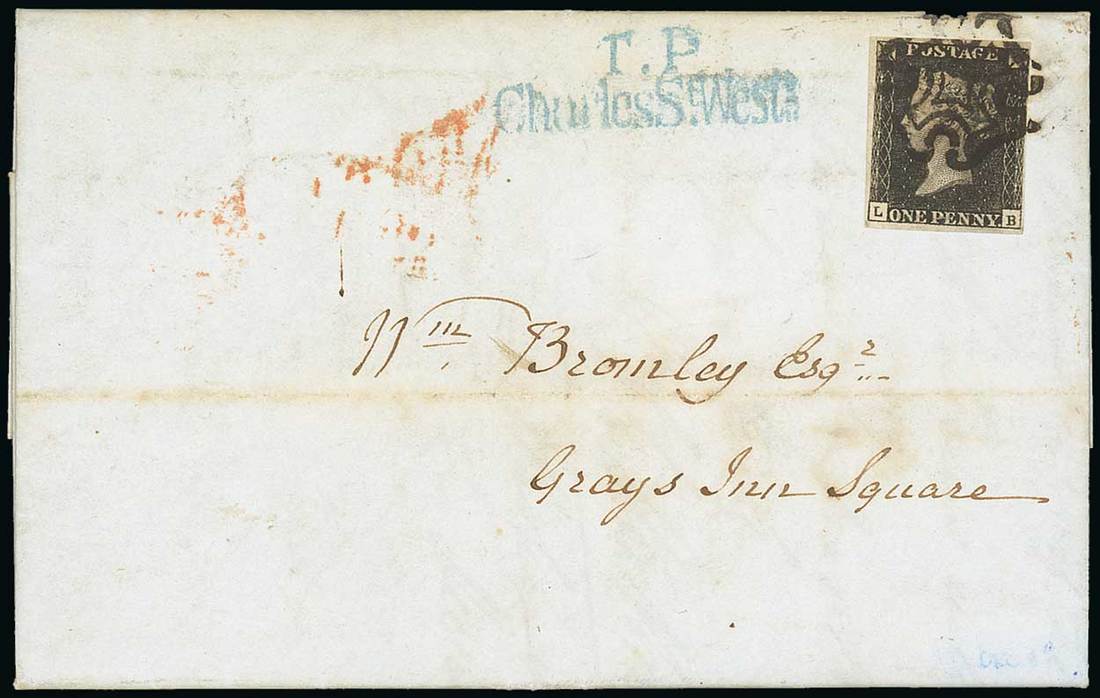 T.P
Charles St. Westr
POSTAGE
L ONE PENNY. B
Wm Bromley Esqr
Grays Inn Square